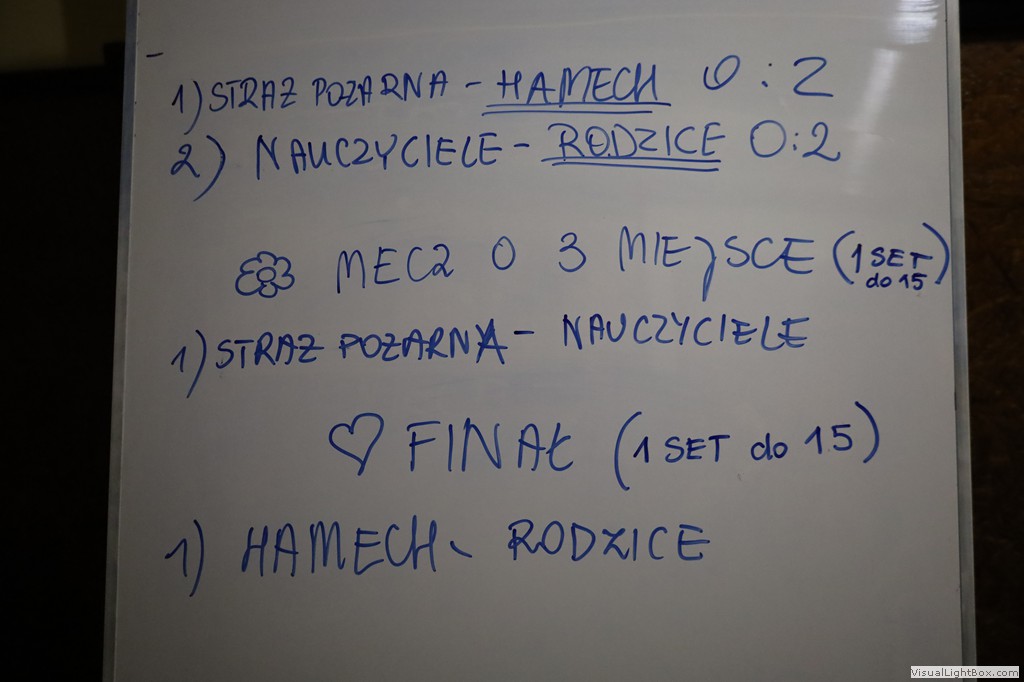 1) STRAZ POZARNA - HAMECH 0 : 2
2) NAUCZYCIELE - RODZICE 0:2
MECZ O 3 MIEJSCE (1 SET do 15)
1) STRAZ POZARNA - NAUCZYCIELE
FINAŁ (1 SET do 15)
1) HAMECH - RODZICE
VisualLightBox.com